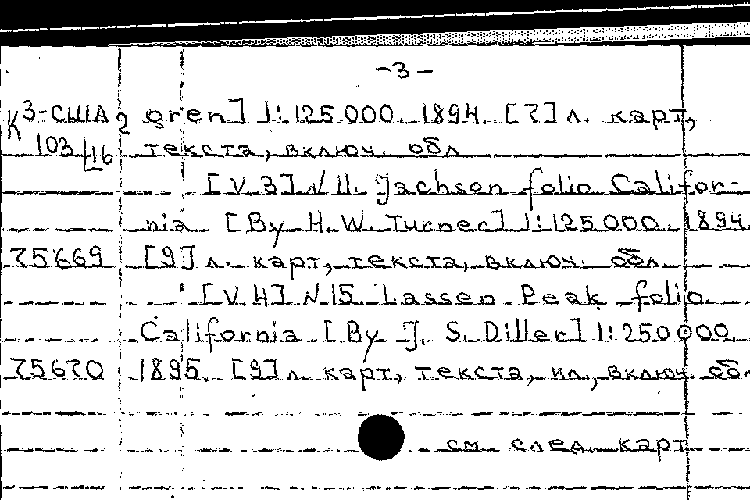 -3-
К3-США gren] 1:125000. 1894. [7] л. карт,
103/116 текста, включ. обл
[V.3] N 11. Jackson folio Califor-
nia [By H.W. Turner] 1:125000. 1894.
75669 [9] л. карт, текста, включ. обл.
[V.4] N 15. Lassen Peak folio
California [By J. S. Diller] 1:250000
75670 1895. [9] л. карт, текста, ил., включ. об
см. след. карт